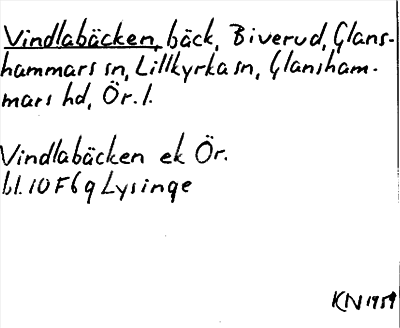 Vindlabäcken, bäck, Biverud, Glans-
hammars sn, Lillkyrka sn, Glansham-
mars hd, Ör. l.
Vindlabäcken ek Ör.
bl. 10 F 6 g Lysinge
KN 1959